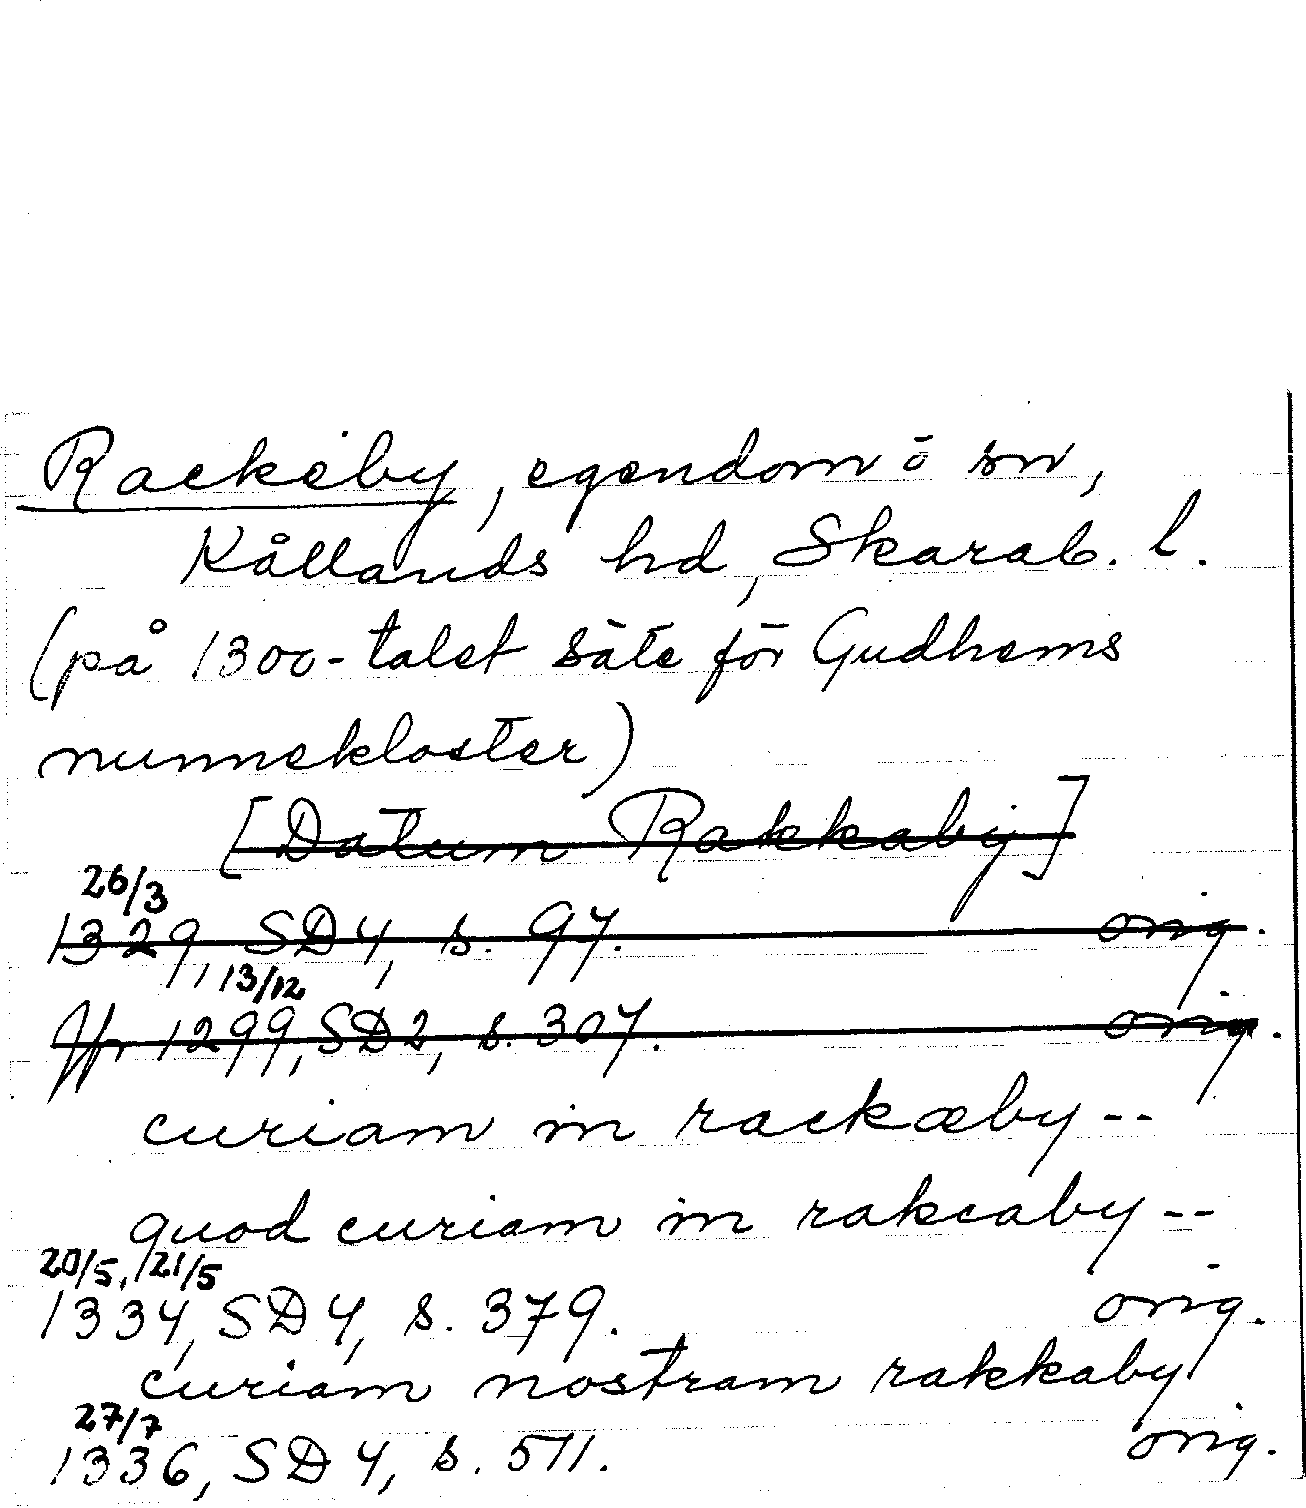 Rackeby, egendom o sn,
Kållands hd, Skarab. l.
(på 1300-talet säte för Gudhems
nunnekloster)
[Datum Rakkaby]
26/3
1329, SD 4, s. 97. orig.
13/12
Jfr 1299, SD 2, s. 307. orig.
curiam in rackæby --
quod curiam in rakcaby --
20/5, 21/5
1334, SD 4, s. 379. orig.
curiam nostram rakkaby
27/7
1336, SD 4, s. 511. orig.